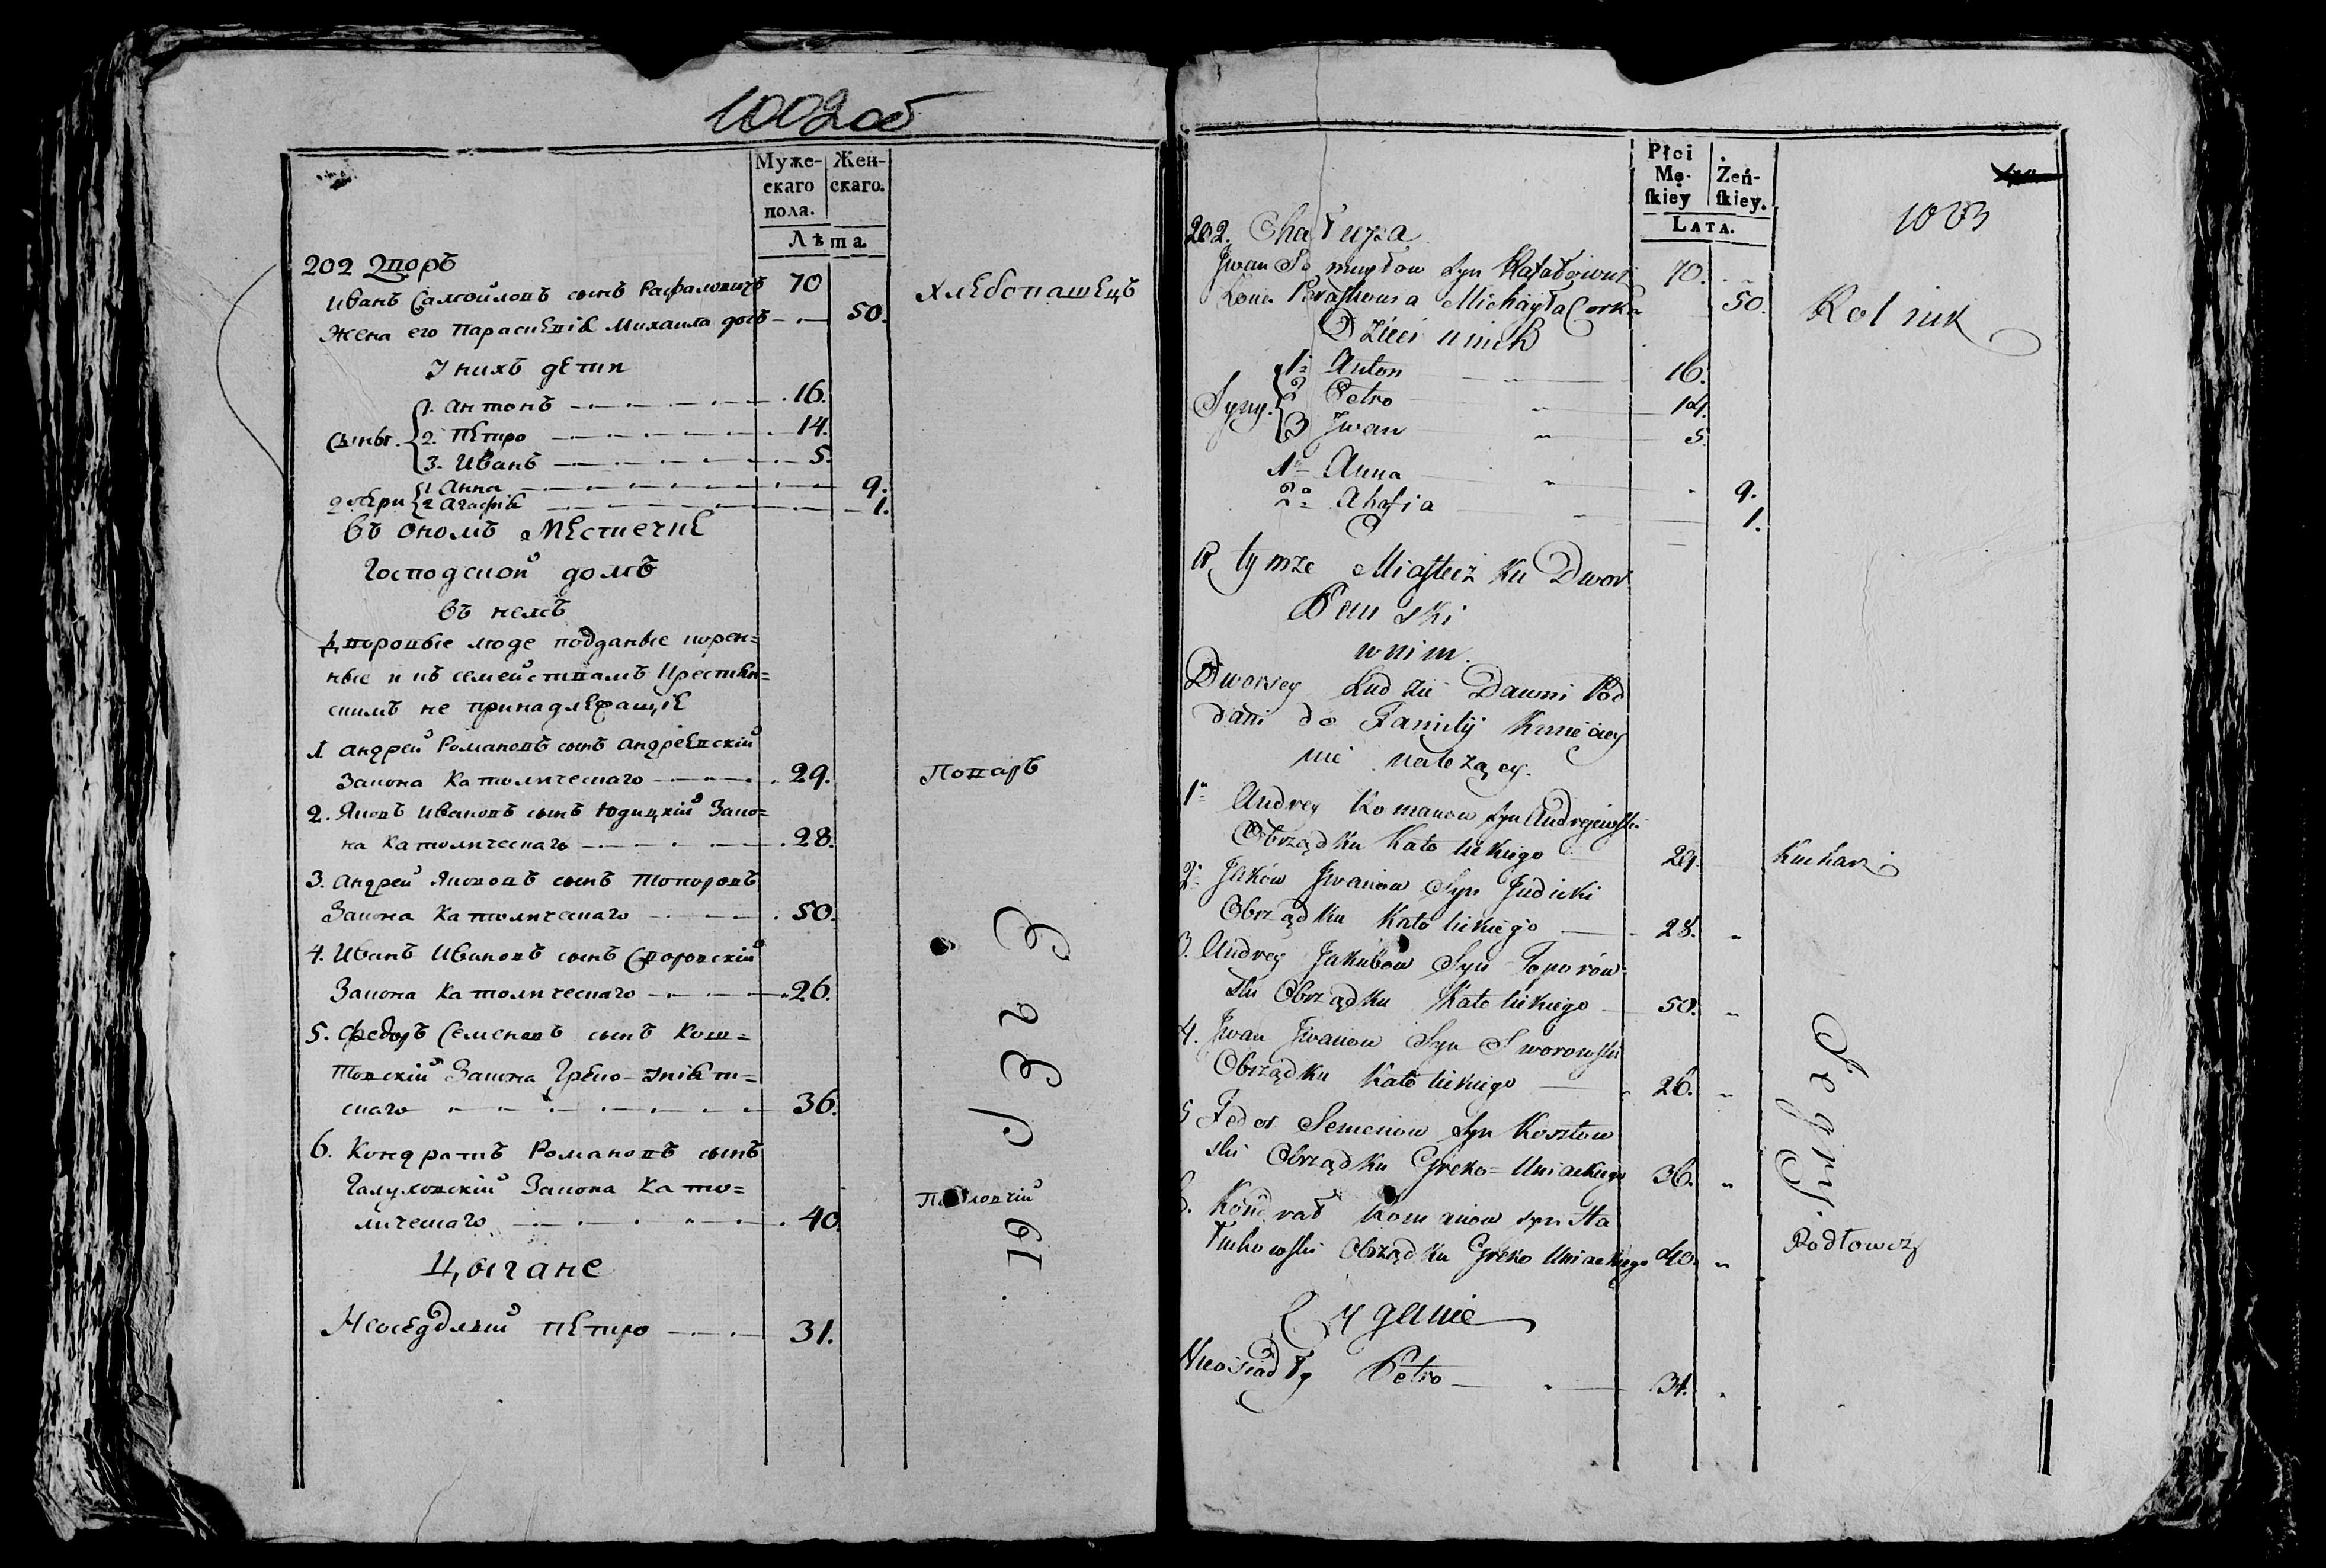 1002об
Муже-
скаго
пола.
Жен-
скаго.
Лѣта.
202 Дворъ
Иванъ Самойловъ сынъ Рафаловичъ 70
Хлебопашецъ
Жена его Парасковія Михаила дочь 50.
У нихъ дети
Сыны.
1. Антонъ 16.
2. Петро 14.
3. Иванъ 5.
дочери
1. Анна 9.
2 Агафія 1.
въ ономъ Местечке
Господской домъ
въ немъ
Дворовые люде подданые корен=
ные и къ семействамъ Крестьян=
скимъ не принадлежащіе
1. Андрей Романовъ сынъ Андреевскій
Закона Католическаго 29.
Поваръ
2. Яковъ Ивановъ сынъ Юдицкій Зако=
на Католическаго 28.
3. Андрей Якововъ сынъ Топоровъ
Закона Католическаго 50.
4. Иванъ Ивановъ сынъ Створовскій
Закона Католическаго 26.
5. Федоръ Семеновъ сынъ Кош=
товскій Закона Греко-Уніятс=
скаго 36.
6. Кондратъ Романовъ сынъ
Галуховскій Закона Като=
лическаго 40.
Цыгане
Неоседлый Петро 31.
Płci
Mę-
ſkiey
Żeń-
ſkiey.
LATA.
1003
202. Chałupa
Jwan Samuyłow Syn Rafałowicz 70.
Rolnik
Żona Paraskowia Michayła Corka 50.
Dzieci u nich
Syny.
1. Anton 16.
2 Petro 14.
3 Jwan 5.
1a Anna 9.
2a Ahafia 1.
W tymże Miasteczku Dwor
Panski
w nim.
Dworscy Ludzie Dawni Pod
dani do Familij Kmiecicy
nie należący.
1o Andrey Romanow Syn Andrejewski
Obrządku Katolickiego 29.
Kucharz
2. Jaków Jwanow Syn Judicki
Obrządku Katolickiego 28.
3. Andrey Jakubow Syn Toporow
ski Obrządku Katolickiego 50.
4. Jwan Jwanow Syn Sworowski
Obrządku Katolickiego 26.
5 Fedor Semenow Syn Kosztow
ski Obrządku Greko=Uniackiego 36.
6. Kondrat Romanow syn Ha
łuhowski Obrządku Greko Uniackiego 40.
Podłowczy
Cyganie
Nieosiadły Petro 31.